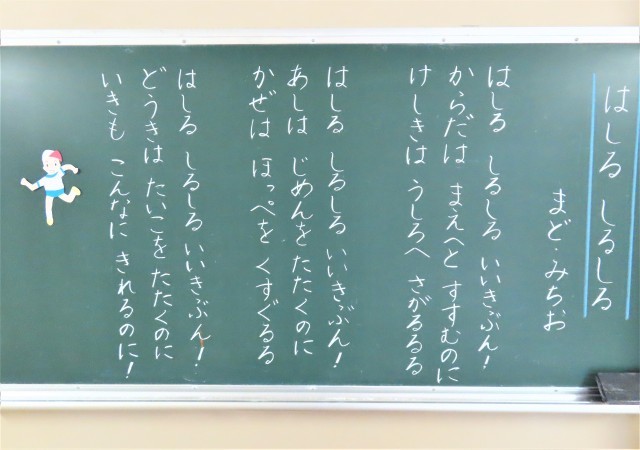 はしる しるしる
まど・みちお
はしる しるしる いいきぶん!
からだは まえへと すすむのに
けしきは うしろへ さがるるる
はしる しるしる いいきぶん!
あしは じめんを たたくのに
かぜは ほっぺを くすぐるる
はしる しるしる いいきぶん!
どうきは たいこを たたくのに
いきも こんなに きれるのに!